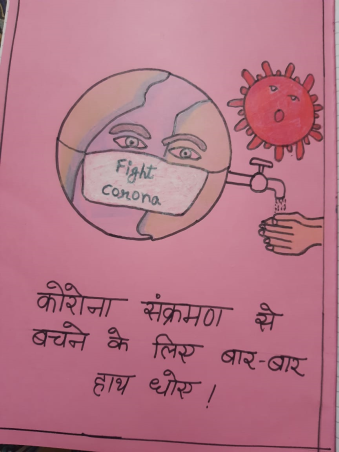 Fight
corona
कोरोना संक्रमण से
बचने के लिए बार-बार
हाथ धोए !